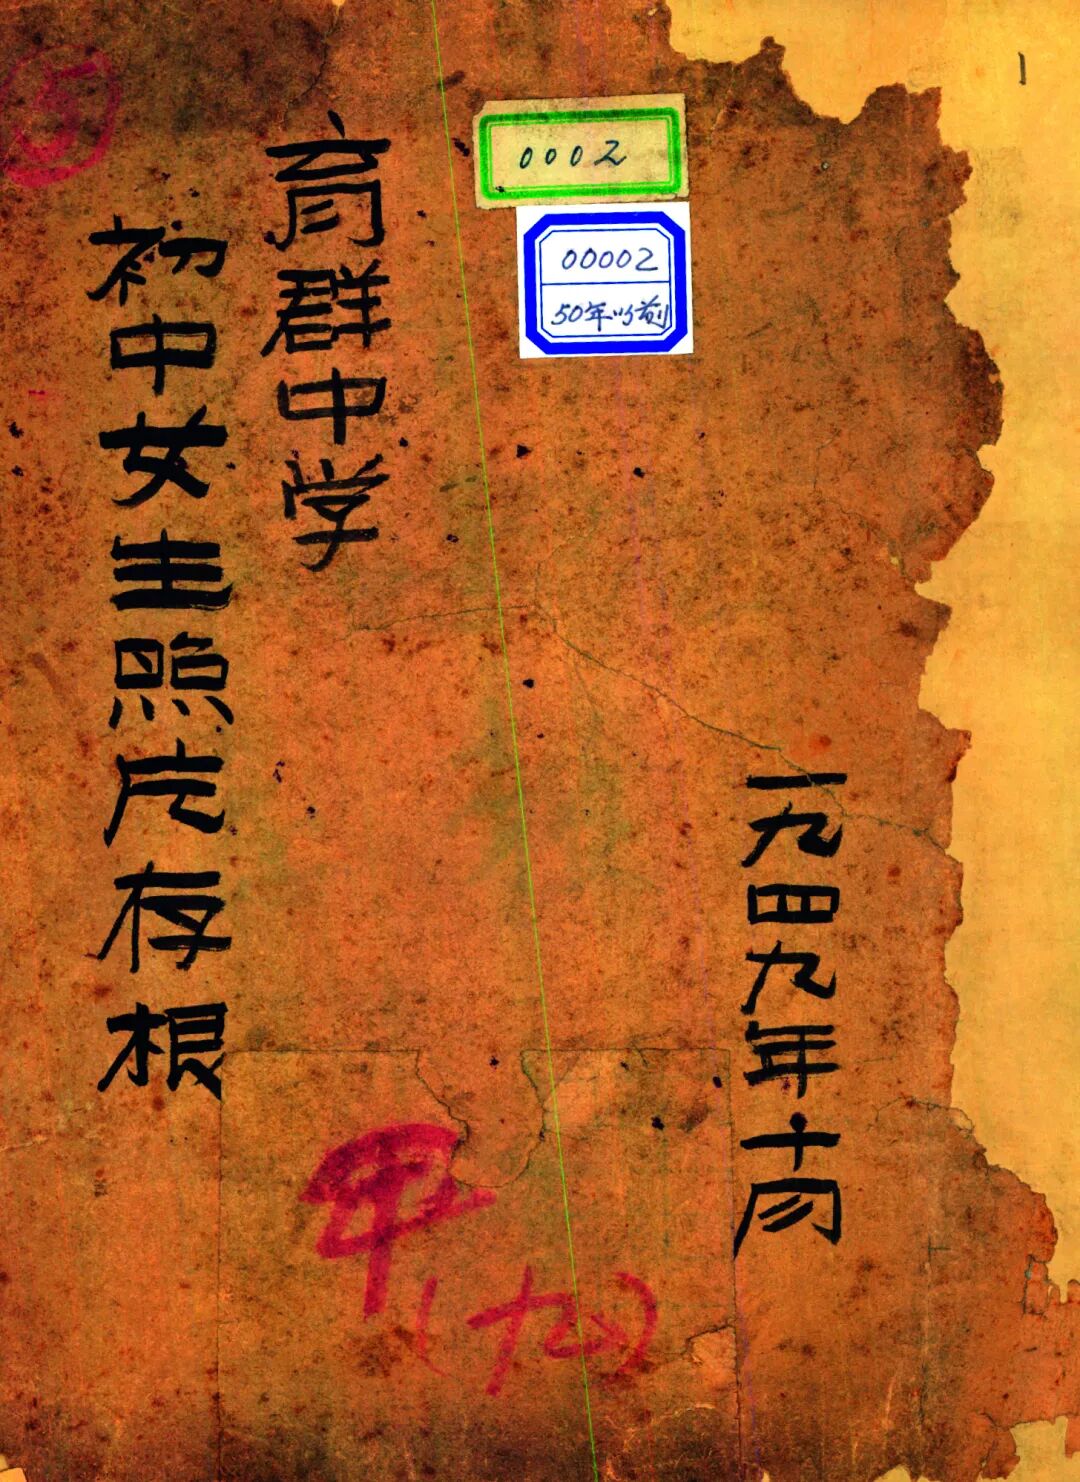 0002
00002
50年以前
育群中学
初中女生照片存根
一九四九年十月
甲